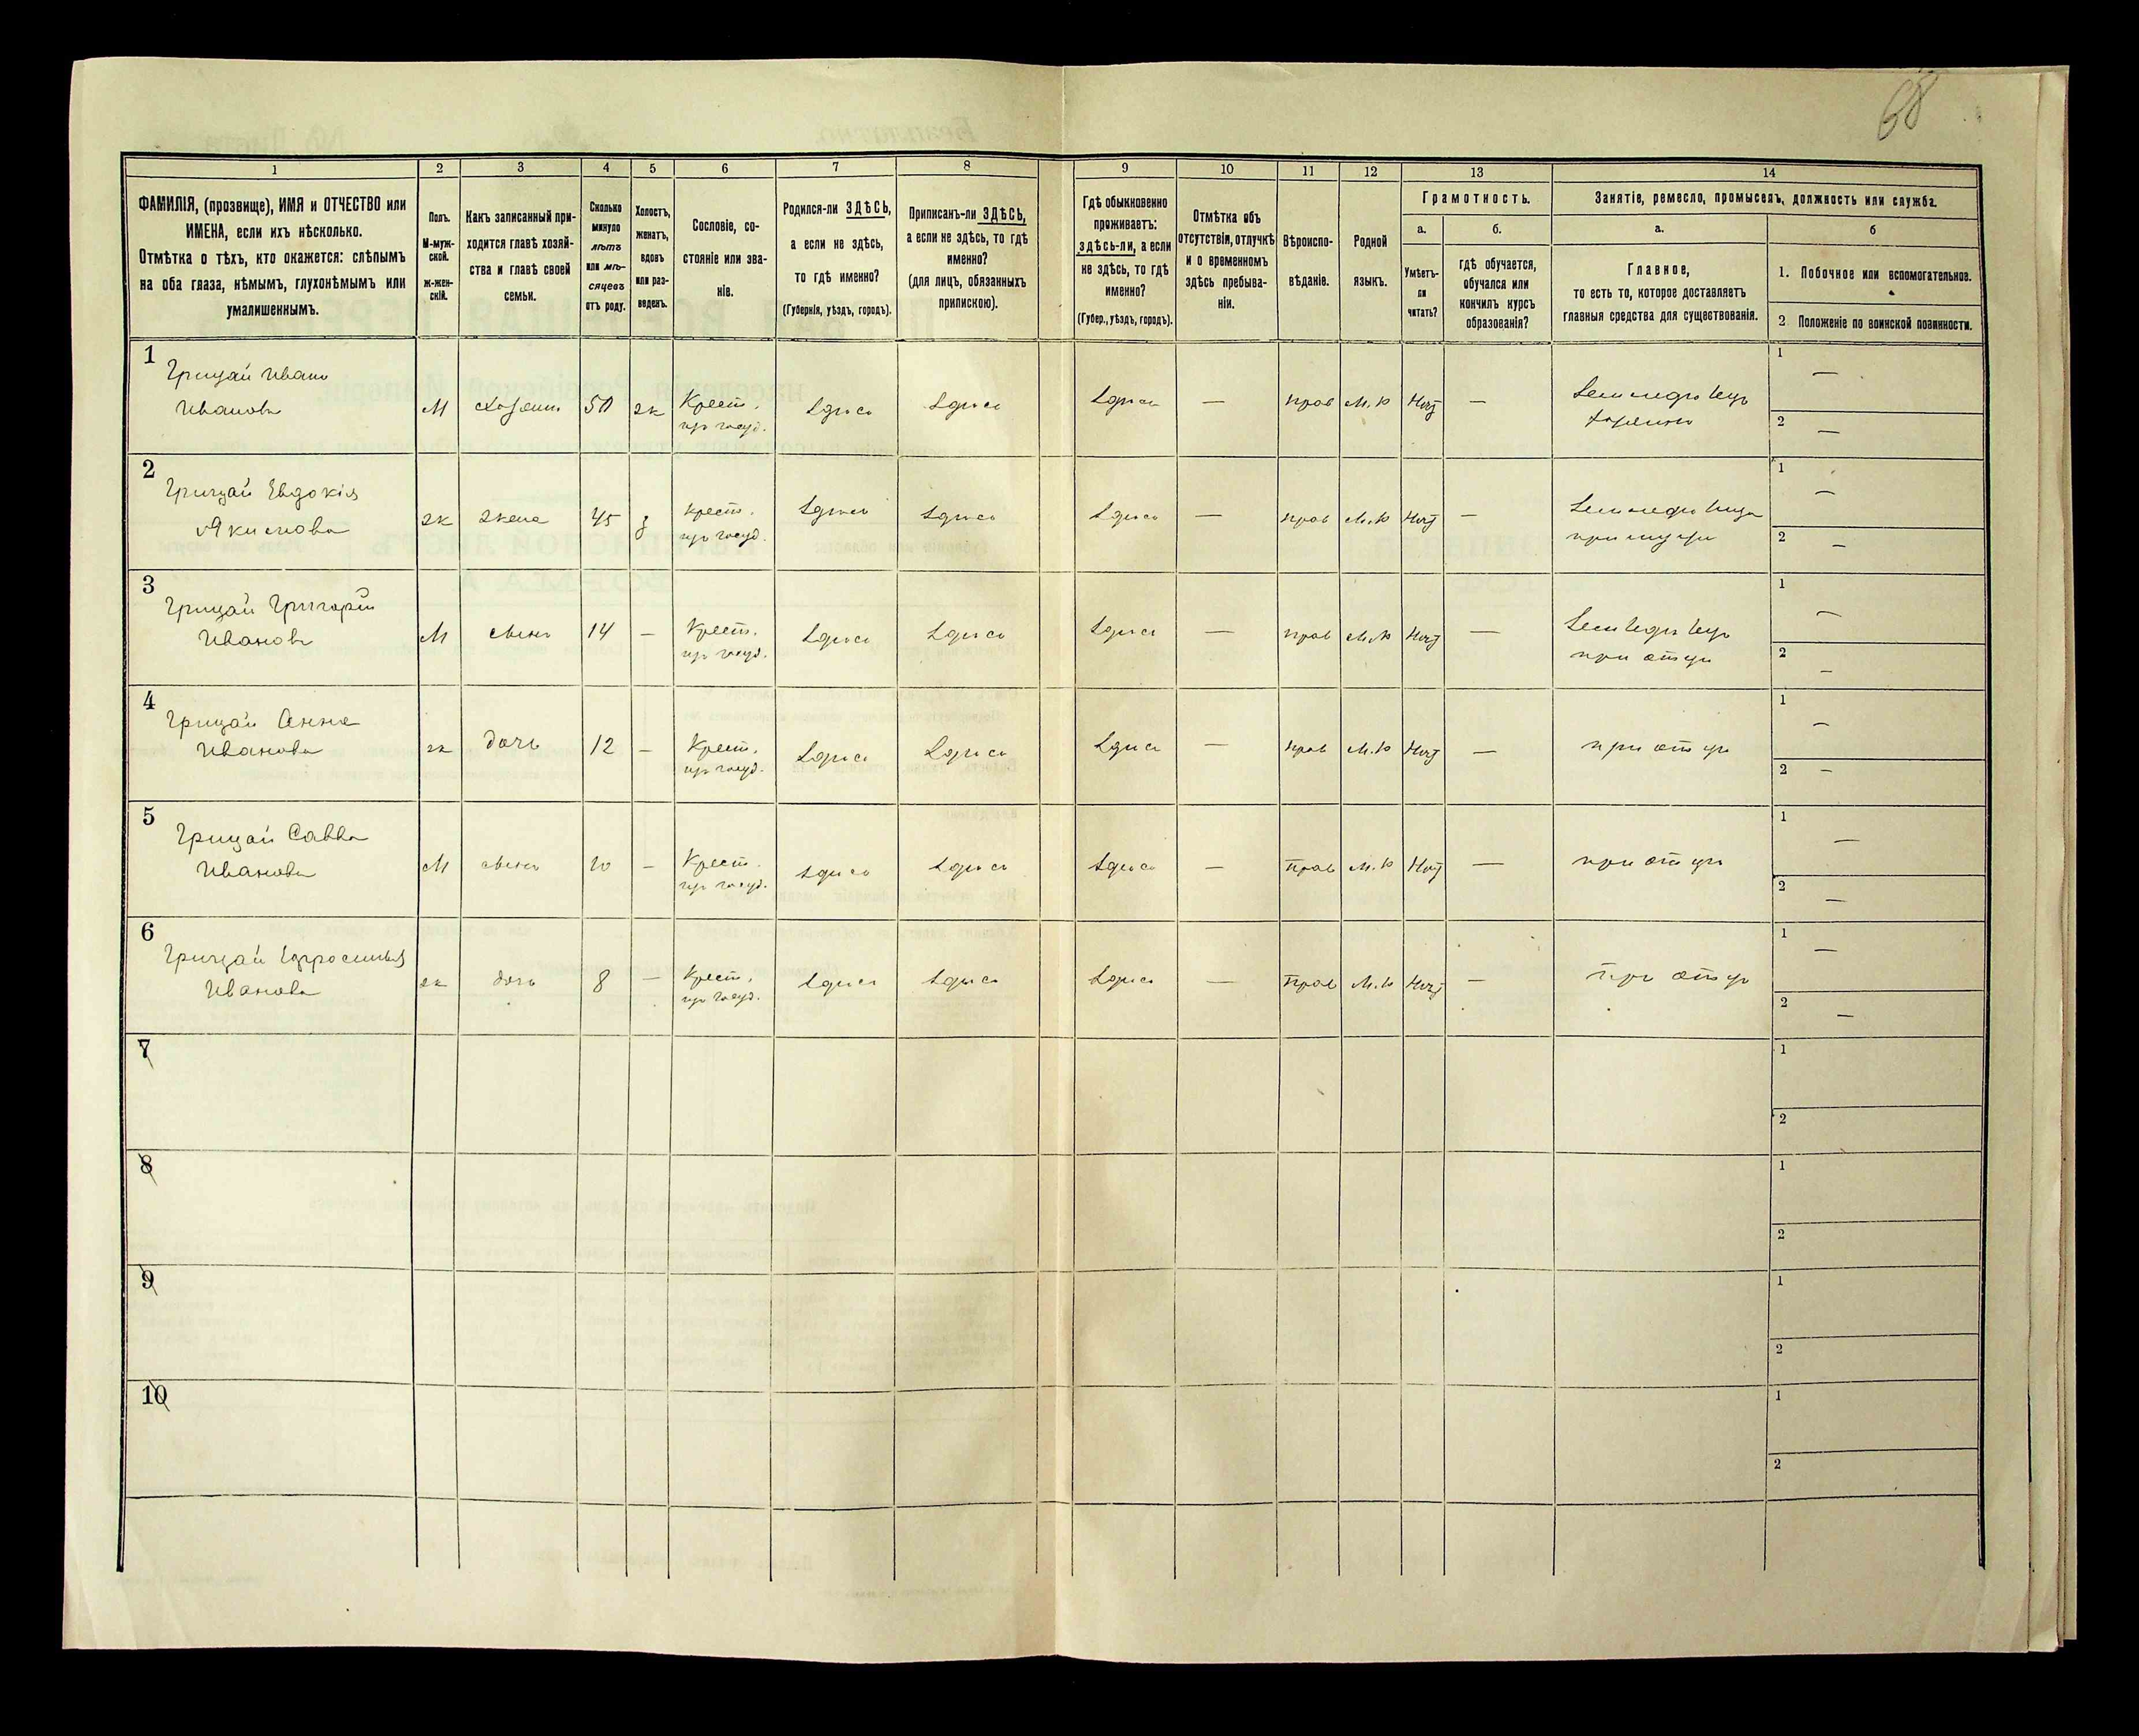 68
1 2 3 4 5 6 7 8 9 10 11 12 13 14
ФАМИЛІЯ, (прозвище), ИМЯ и ОТЧЕСТВО или
ИМЕНА, если ихъ нѣсколько.
Отмѣтка о тѣхъ, кто окажется: слѣпымъ
на оба глаза, нѣмымъ, глухонѣмымъ или
умалишеннымъ.
Полъ.
М-муж-
ской.
ж-жен-
скій.
Какъ записанный при-
ходится главѣ хозяй-
ства и главѣ своей
семьи.
Сколько
минуло
лѣтъ
или мѣ-
сяцевъ
отъ роду.
Холостъ,
женатъ,
вдовъ
или раз-
веденъ.
Сословіе, со-
стояніе или зва-
ніе.
Родился-ли ЗДѢСЬ,
а если не здѣсь,
то гдѣ именно?
(Губернія, уѣздъ, городъ).
Приписанъ-ли ЗДѢСЬ,
а если не здѣсь, то гдѣ
именно?
(для лицъ, обязанныхъ
припискою).
Гдѣ обыкновенно
проживаетъ:
здѣсь-ли, а если
не здѣсь, то гдѣ
именно?
(Губер., уѣздъ, городъ).
Отмѣтка объ
отсутствіи, отлучкѣ
и о временномъ
здѣсь пребыва-
ніи.
Вѣроиспо-
вѣданіе.
Родной
языкъ.
Грамотность.
а.
Умѣетъ-
ли
читать?
б.
гдѣ обучается,
обучался или
кончилъ курсъ
образованія?
Занятіе, ремесло, промыселъ, должность или служба.
а.
Главное,
то есть то, которое доставляетъ
главныя средства для существованія.
б
1. Побочное или вспомогательное.
2 Положеніе по воинской повинности.
1
Грицай Иванъ
Ивановъ
М хозяинъ 50 ж Крест.
из госуд.
здѣсь здѣсь здѣсь — прав М.р Нѣт —
Земледѣлецъ
хозяинъ
1 —
2 —
2
Грицай Евдокія
Якимова
ж жена 45 з крест.
из госуд.
здѣсь здѣсь здѣсь — прав М.р Нѣт —
при мужѣ
1 —
2 —
3
Грицай Григорій
Ивановъ
М сынъ 14 — Крест.
из госуд.
здѣсь здѣсь здѣсь — прав М.р Нѣт —
при отцѣ
1 —
2 —
4
Грицай Анна
Иванова
ж дочь 12 — Крест.
из госуд.
здѣсь здѣсь здѣсь — прав М.р Нѣт —
при отцѣ
1 —
2 —
5
Грицай Савва
Ивановъ
М сынъ 10 — Крест.
из госуд.
здѣсь здѣсь здѣсь — Прав М.р Нѣт —
при отцѣ
1 —
2 —
6
Грицай Ефросинья
Иванова
ж дочь 8 — Крест.
из госуд.
здѣсь здѣсь здѣсь — Прав М.р Нѣт —
при отцѣ
1 —
2 —
7
1
2
8
1
2
9
1
2
10
1
2